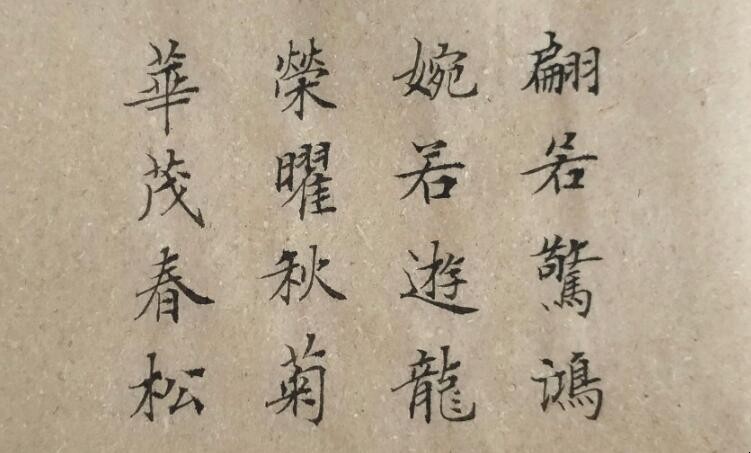 翩若驚鴻
婉若遊龍
榮曜秋菊
華茂春松